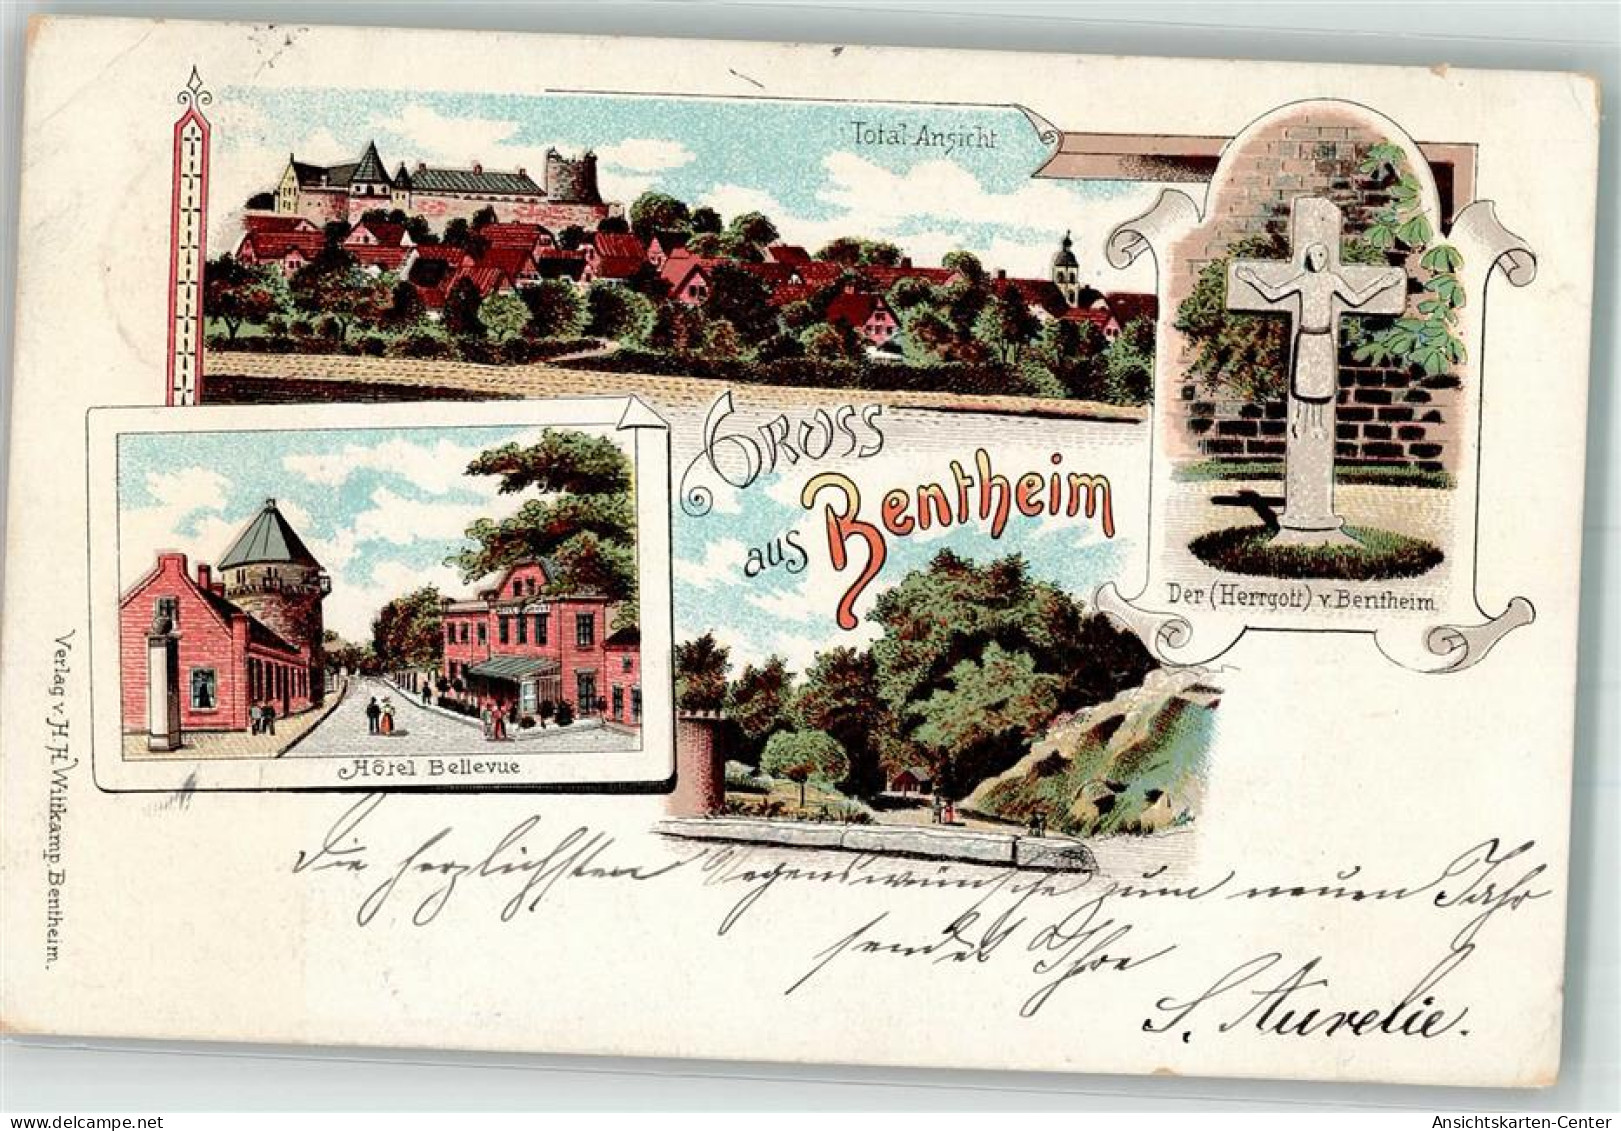 Total-Ansicht
Gruss
aus Bentheim
Der (Herrgott) v. Bentheim
Hôtel Bellevue
Verlag v. H. H. Wittkamp Bentheim.
Die herzlichsten Segenswünsche zum neuen Jahr
sendet Ihre
S. Aurelie.
Ansichtskarten-Center